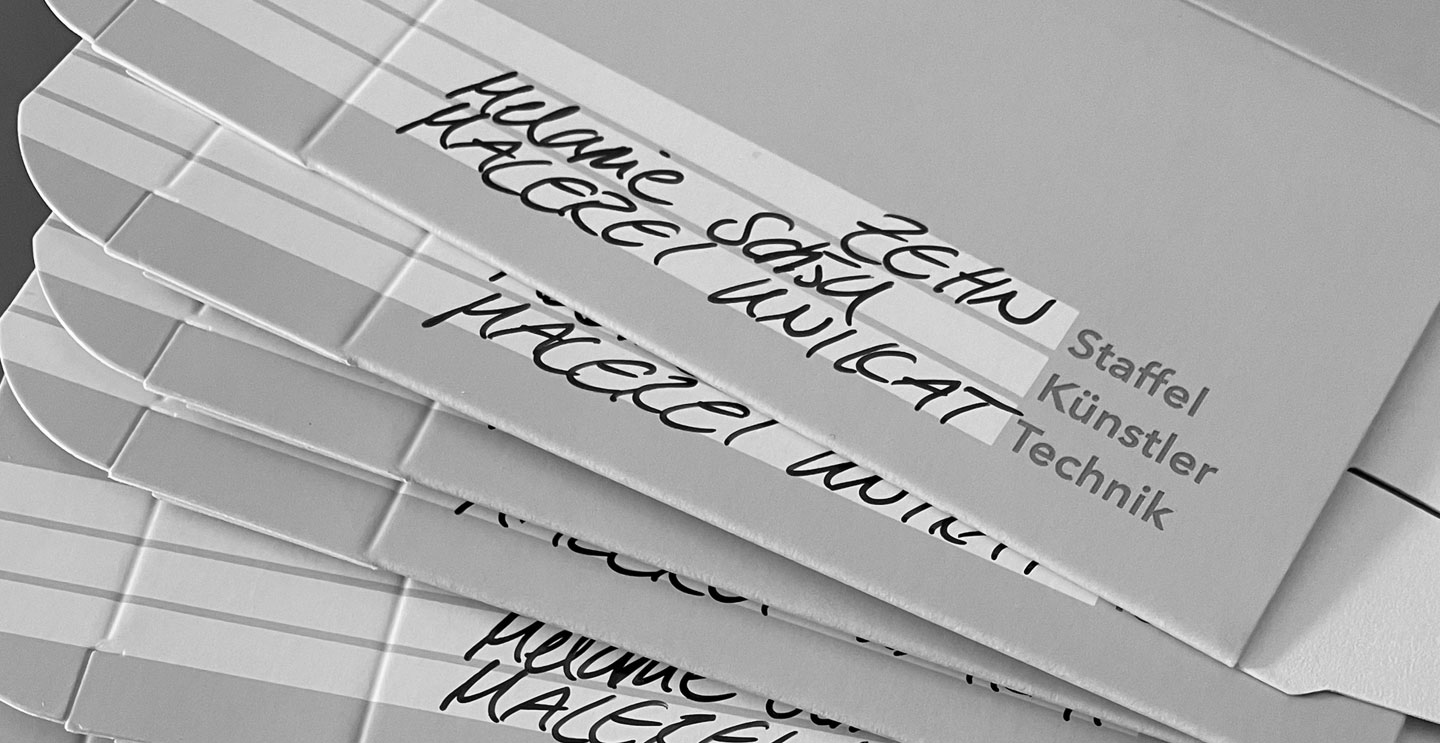 ZEHN Staffel
Melanie Schsu Künstler
MALEREI UNIKAT Technik
MALEREI UNIKAT
MALEREI
Melanie
MALEREI